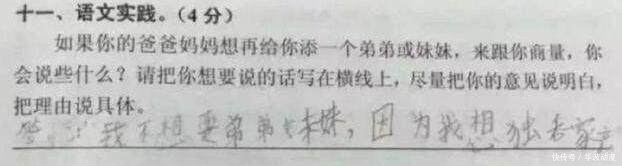 十一、语文实践。(4分)
如果你的爸爸妈妈想再给你添一个弟弟或妹妹，来跟你商量，你
会说些什么？请把你想要说的话写在横线上，尽量把你的意见说明白，
把理由说具体。
答：我不想要弟弟妹妹，因为我想独吞家产
快传号/华波动漫